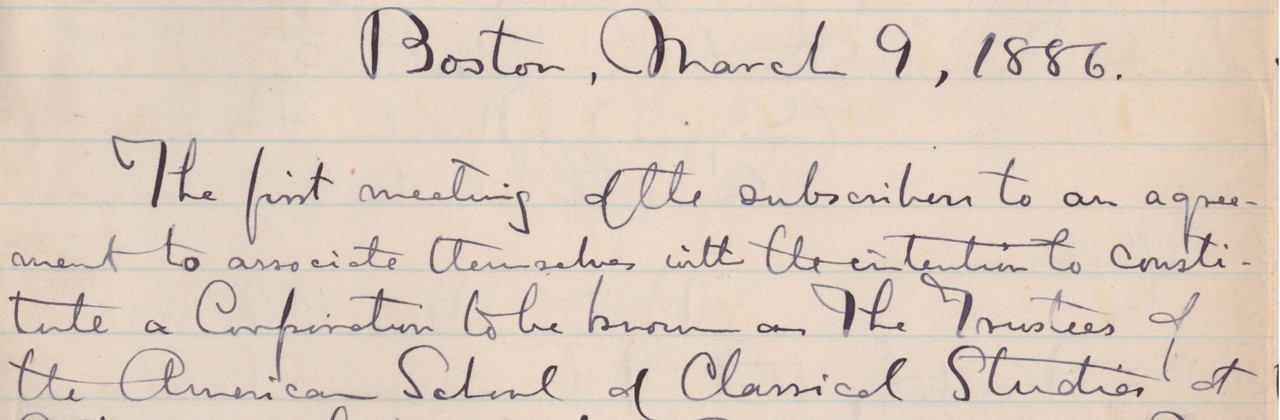 Boston, March 9, 1886.
The first meeting of the subscribers to an agree-
ment to associate themselves with the intention to consti-
tute a Corporation to be known as The Trustees of
the American School of Classical Studies at